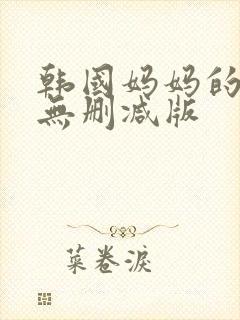 韩国妈妈的
無删减版
菜卷淚